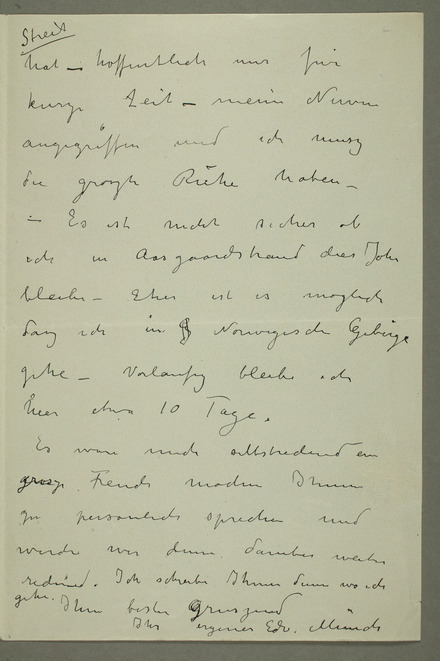 Streit
hat – hoffentlich nur für
kurze Zeit – meine Nerven
angegriffen und ich musz
die grozte Ruhe haben –
– Es ist nicht sicher ob
ich in Aasgaardstrand dies Jahr
bleibe – Eher ist es moglich
dasz ich in Norwegische Gebirge
gehe – Vorlaufig bleibe ich
hier etwa 10 Tage.
Es ware mich selbstredend ein
grosze Freude machen Ihnen
zu personlich sprechen und
werde wir dann daruber weiter
redend. Ich schreibe Ihnen dann wo ich
gehe. Ihnen besten Gruszend
Ihr ergener Edv. Munch